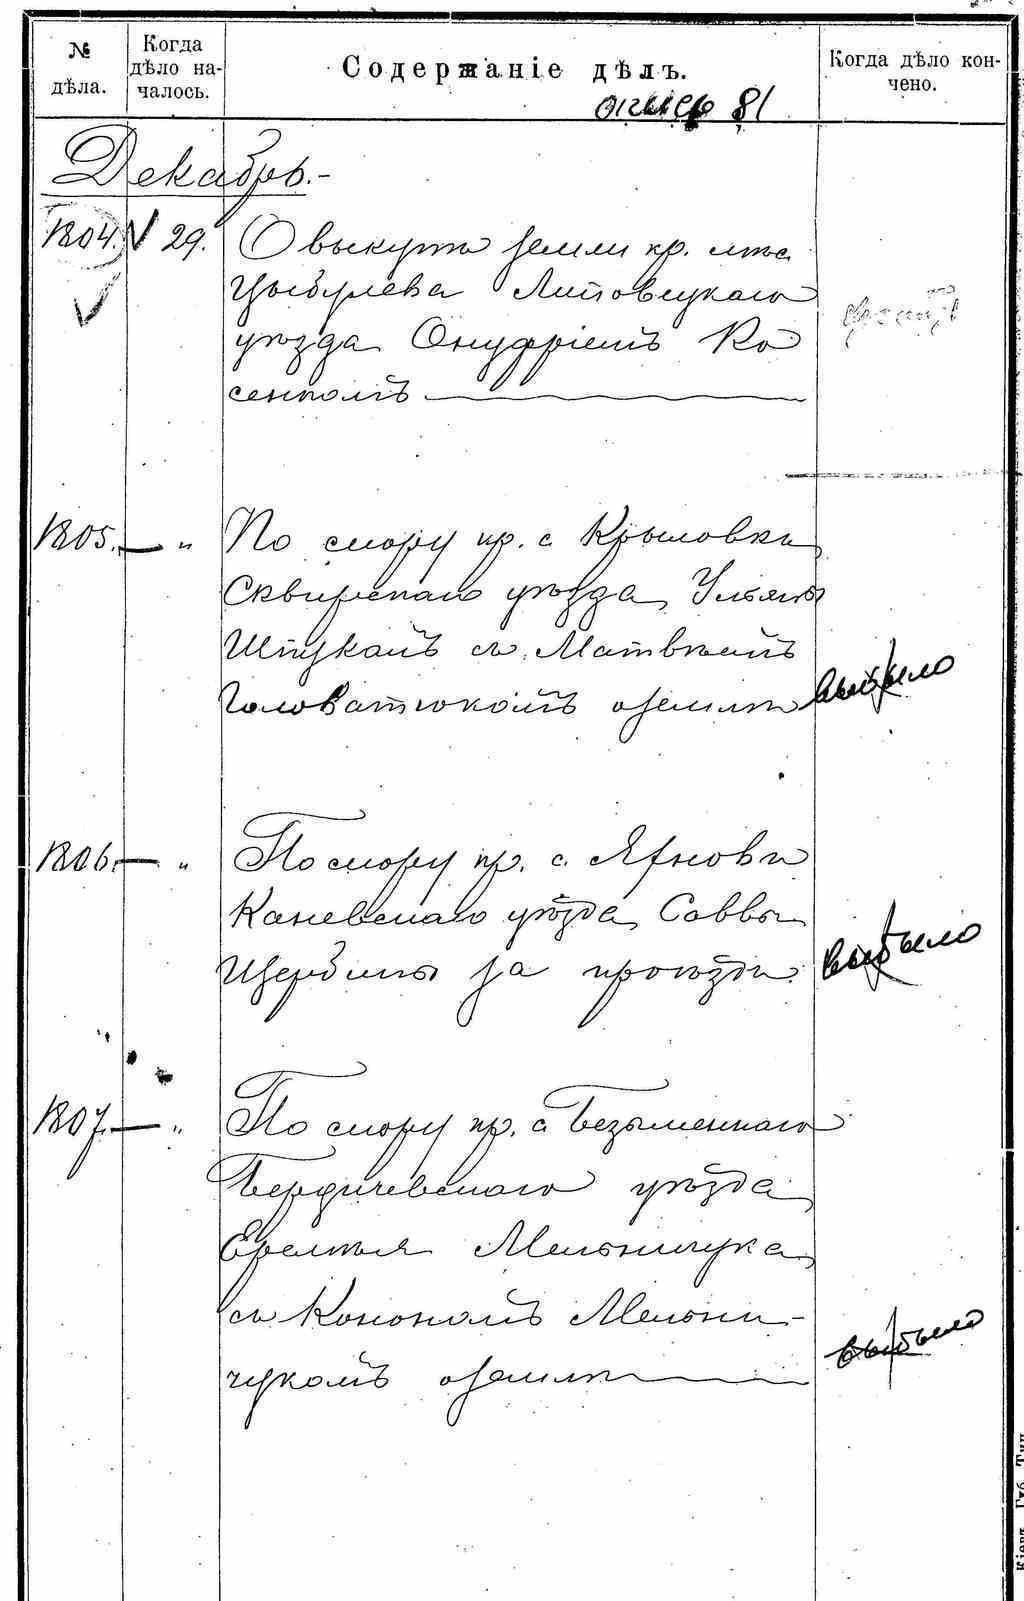 № дѣла.
Когда дѣло на-
чалось.
Содержаніе дѣлъ.
Когда дѣло кон-
чено.
опись 81
Декабрь.-
1804. V 29. О выкупѣ земли кр. м-ка
Цыбулева Липовецкаго
уѣзда Онуфріемъ Ко
сенкомъ
1805. — „ По спору кр. с. Крыловки
Сквирскаго уѣзда, Ульяны
Шпукамъ съ Матвѣемъ
Головатюкомъ о землѣ
выбыло
1806. — „ По спору кр. с.
Каневскаго уѣзда, Саввы
Щербины за проѣздъ.
выбыло
1807. — „ По спору кр. с. Безыменнаго
Бердичевскаго уѣзда
Еремѣя Мельничука
съ Конономъ Мельни-
чукомъ о землѣ
выбыло
Кіевъ. Губ. Тип.